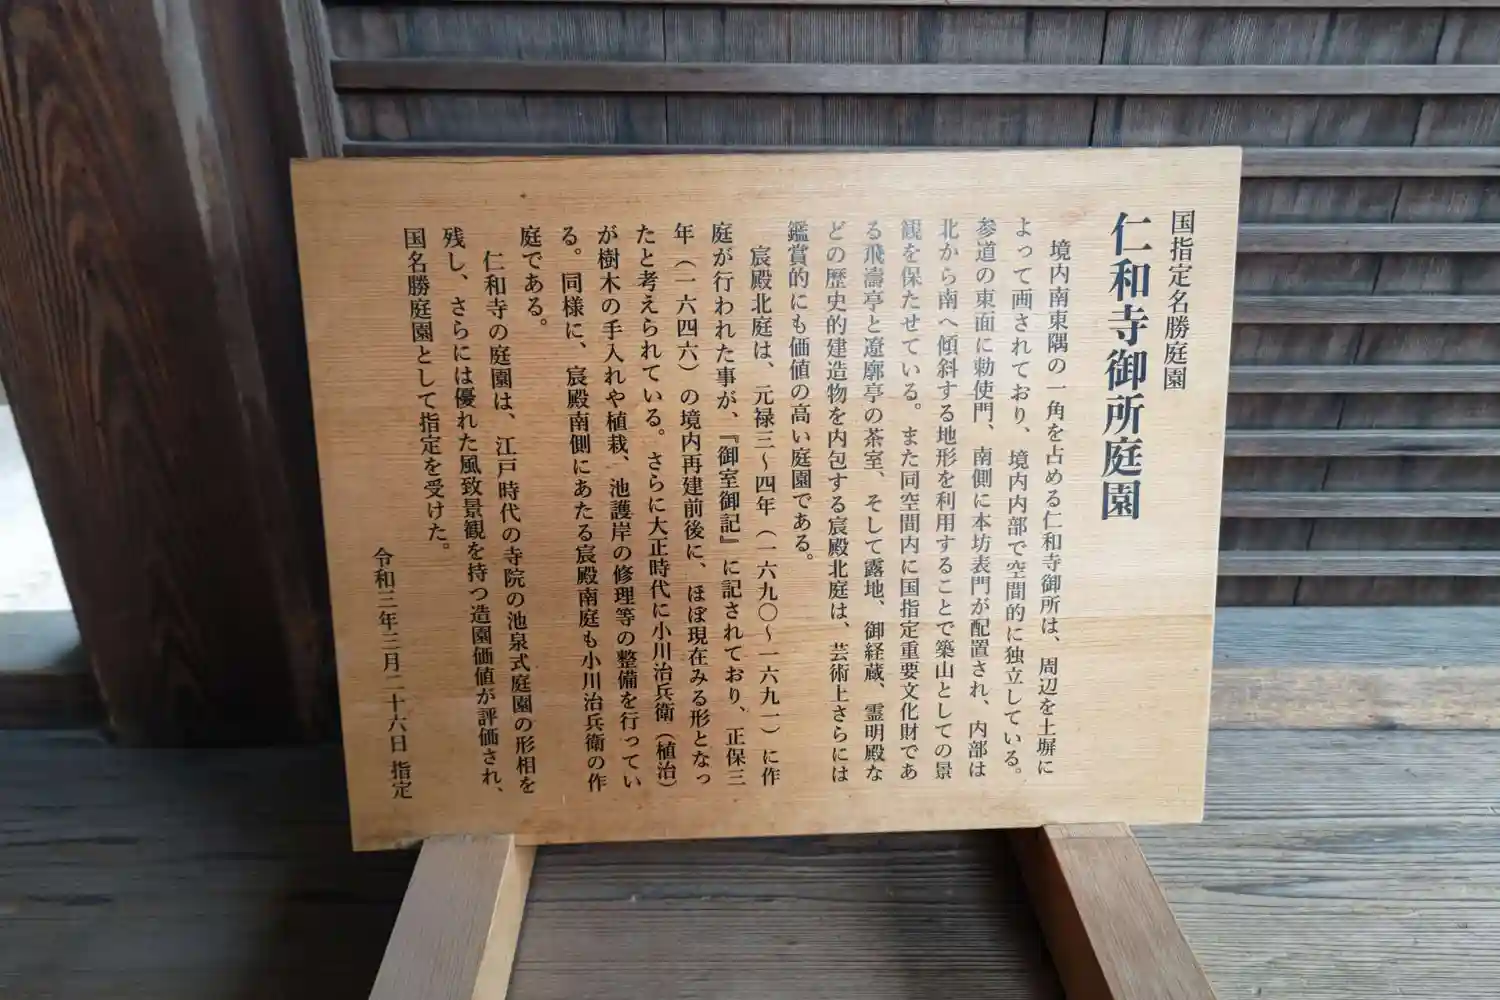 国指定名勝庭園
仁和寺御所庭園
境内南東隅の一角を占める仁和寺御所は、周辺を土塀に
よって画されており、境内内部で空間的に独立している。
参道の東面に勅使門、南側に本坊表門が配置され、内部は
北から南へ傾斜する地形を利用することで築山としての景
観を保たせている。また同空間内に国指定重要文化財であ
る飛濤亭と遼廓亭の茶室、そして露地、御経蔵、霊明殿な
どの歴史的建造物を内包する宸殿北庭は、芸術上さらには
鑑賞的にも価値の高い庭園である。
宸殿北庭は、元禄三〜四年（一六九〇〜一六九一）に作
庭が行われた事が、『御室御記』に記されており、正保三
年（一六四六）の境内再建前後に、ほぼ現在みる形となっ
たと考えられている。さらに大正時代に小川治兵衛（植治）
が樹木の手入れや植栽、池護岸の修理等の整備を行ってい
る。同様に、宸殿南側にあたる宸殿南庭も小川治兵衛の作
庭である。
仁和寺の庭園は、江戸時代の寺院の池泉式庭園の形相を
残し、さらには優れた風致景観を持つ造園価値が評価され、
国名勝庭園として指定を受けた。
令和三年三月二十六日 指定